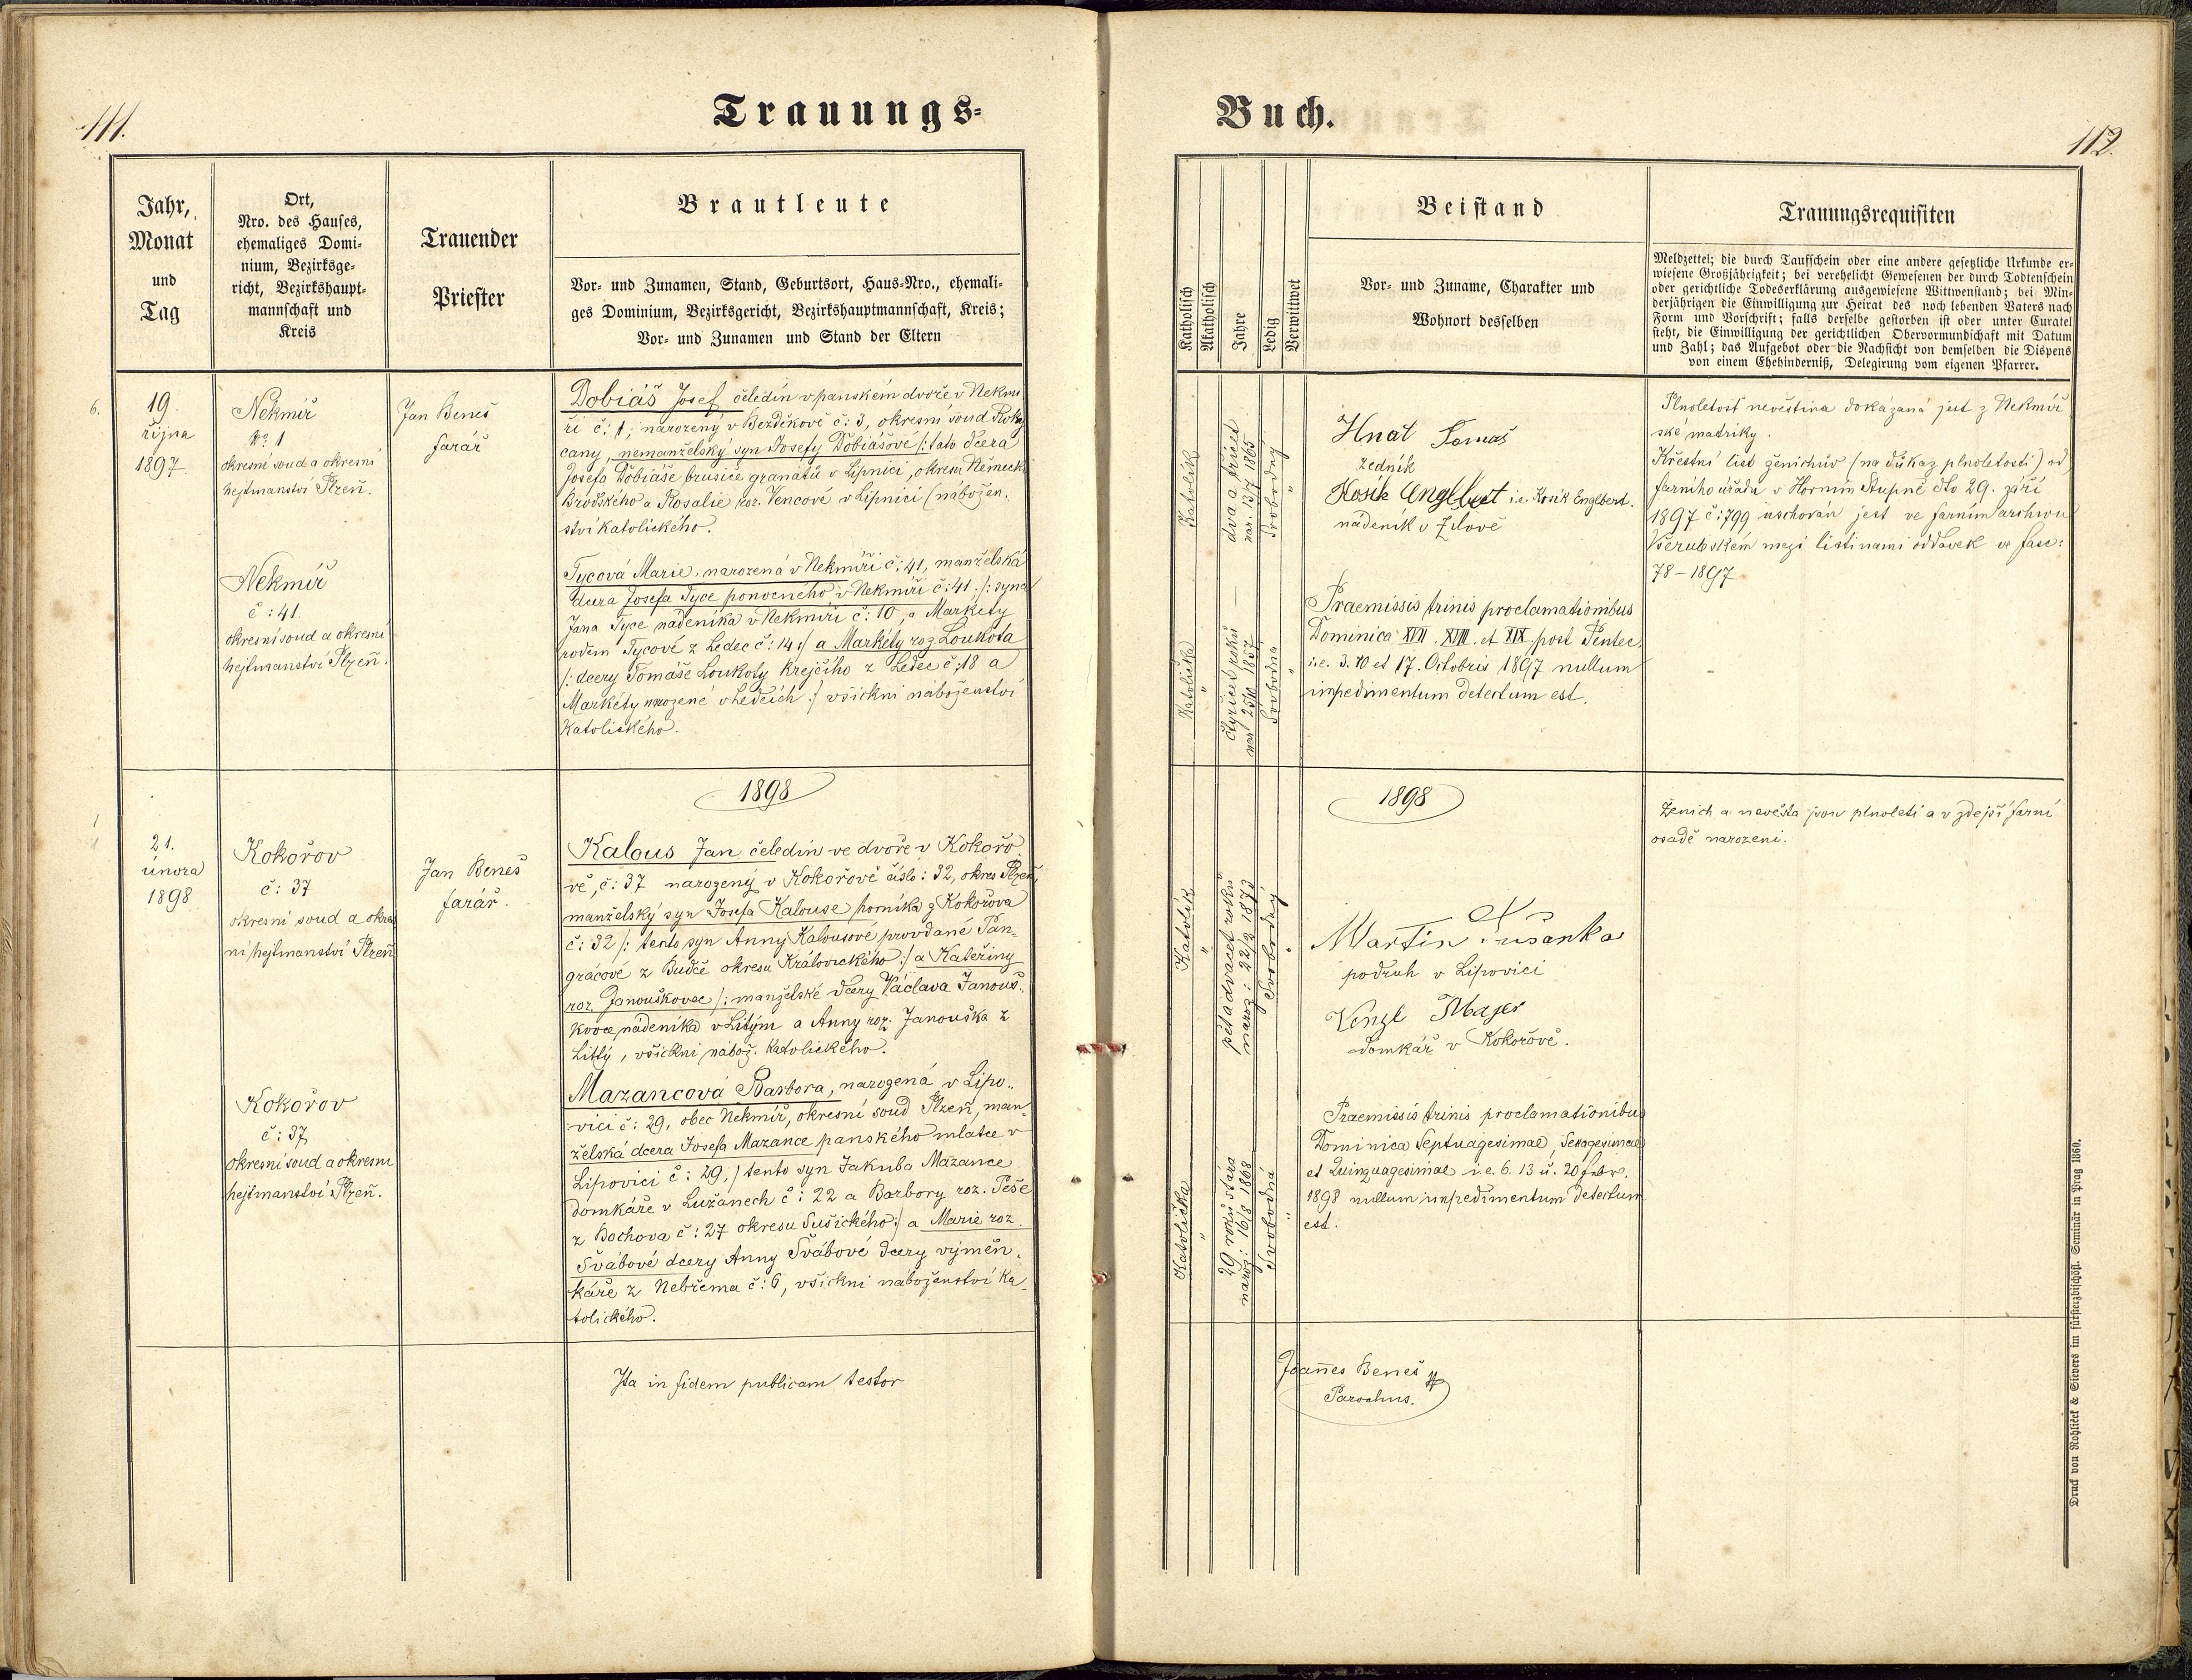 111.
Trauungs-
Jahr,
Monat
und
Tag
Ort,
Nro. des Hauses,
ehemaliges Domi-
nium, Bezirksge-
richt, Bezirkshaupt-
mannschaft und
Kreis
Trauender
Priester
Brautleute
Vor- und Zunamen, Stand, Geburtsort, Haus-Nro., ehemali-
ges Dominium, Bezirksgericht, Bezirkshauptmannschaft, Kreis;
Vor- und Zunamen und Stand der Eltern
6.
19.
října
1897.
Nekmíř
No 1
okresní soud a okresní
hejtmanství Plzeň.
Jan Beneš
farář
Dobiáš Josef čeledín v panském dvoře v Nekmí
ři č: 1, narozený v Bezděkově č: 3, okresní soud Roky
cany, nemanželský syn Josefy Dobiášové /: tato dcera
Josefa Dobiáše brusiče granátů v Lipnici, okresu Německo
Brodského a Rosalie roz. Vencové v Lipnici (nábožen-
ství katolického.
Nekmíř
č: 41.
okresní soud a okresní
hejtmanství Plzeň.
Tycová Marie, narozená v Nekmíři č: 41, manželská
dcera Josefa Tyce ponocného v Nekmíři č: 41 /: syna
Jana Tyce nádeníka v Nekmíři č: 10, a Markéty
rodem Tycové z Ledec č: 14 :/ a Markéty roz. Loukota
/: dcery Tomáše Loukoty krejčího z Ledec č: 18 a
Markéty narozené v Ledcích :/ všickni náboženství
Katolického.
1898
1
21.
února
1898
Kokořov
č: 37
okresní soud a okres
ní hejtmanství Plzeň
Jan Beneš
farář.
Kalous Jan čeledín ve dvoře v Kokořo
vě, č: 37 narozený v Kokořově číslo: 32, okres Plzeň
manželský syn Josefa Kalouse horníka z Kokořova
č: 32 /: tento syn Anny Kalousové provdané Pan-
grácové z Budče okresu Královického :/ a Kateřiny
roz. Janouškovec /: manželské dcery Václava Janouš-
kovce nádeníka v Litým a Anny roz. Janouška z
Litlý, všickni nábož. katolického.
Kokořov
č: 37
okresní soud a okresní
hejtmanství Plzeň.
Mazancová Barbora, narozená v Lipo-
vici č: 29, obec Nekmíř, okresní soud Plzeň, man-
želská dcera Josefa Mazance panského mlatce v
Lipovici č: 29, / tento syn Jakuba Mazance
domkáře v Lužanech č: 22 a Barbory roz. Peše
z Bochova č: 27 okresu Sušického :/ a Marie roz.
Švábové dcery Anny Švábové dcery výměn-
káře z Nebřema č: 6, všickni náboženství Ka
tolického.
Ita in fidem publicam testor
Buch.
112.
Katholisch
Akatholisch
Jahre
Ledig
Verwittwet
Beistand
Vor- und Zuname, Charakter und
Wohnort desselben
Trauungsrequisiten
Meldzettel; die durch Taufschein oder eine andere gesetzliche Urkunde er-
wiesene Großjährigkeit; bei verehelicht Gewesenen der durch Todtenschein
oder gerichtliche Todeserklärung ausgewiesene Wittwenstand; bei Min-
derjährigen die Einwilligung zur Heirat des noch lebenden Vaters nach
Form und Vorschrift; falls derselbe gestorben ist oder unter Curatel
steht, die Einwilligung der gerichtlichen Obervormundschaft mit Datum
und Zahl; das Aufgebot oder die Nachsicht von demselben die Dispens
von einem Ehehinderniß, Delegirung vom eigenen Pfarrer.
Katolík
dva a třicet
nar. 13/7 1865
Svobodný
"
Hnát Tomáš
zedník
Kosik Englbert i.e. Kosík Englbert.
nádeník v Zilově
Plnoletost nevěstina dokázaná jest z Nekmíř
ské matriky.
Křestní list ženichův (na důkaz plnoletosti) od
farního úřadu v Horním Stupně dto 29. září
1897 č: 799 uschován jest ve farním archivu
Všerubském mezi listinami oddavek ve fasc:
78 – 1897
Katolička
"
čtyřicet roků
nar 25/10 1857
Svobodna
"
Praemissis trinis proclamationibus
Dominica XVII. XVIII. et XIX. post Pentec.
i.e. 3. 10 et 17. Octobris 1897 nullum
impedimentum detectum est.
1898
Ženich a nevěsta jsou plnoletí a v zdejší farní
osadě narozeni.
Katolík
"
pět a dvacet roků
naroz: 22/2 1873
Svobodný
"
Martin Tušanka
podruh v Lipovici
Venzl Majer
domkář v Kokořově.
Katolička
"
29 roků stará
naroz: 16/8 1868
Svobodná
"
Praemissis trinis proclamationibus
Dominica Septuagesimae, Sexagesimae
et Quinquagesimae i.e. 6. 13 u. 20 febr.
1898 nullum impedimentum detectum
est.
Joannes Beneš
Parochus.
Druck von Rohliček & Sievers im fürsterzbischöfl. Seminär in Prag 1860.